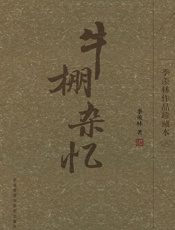 牛棚杂忆
季羡林 著
季羡林作品珍藏本